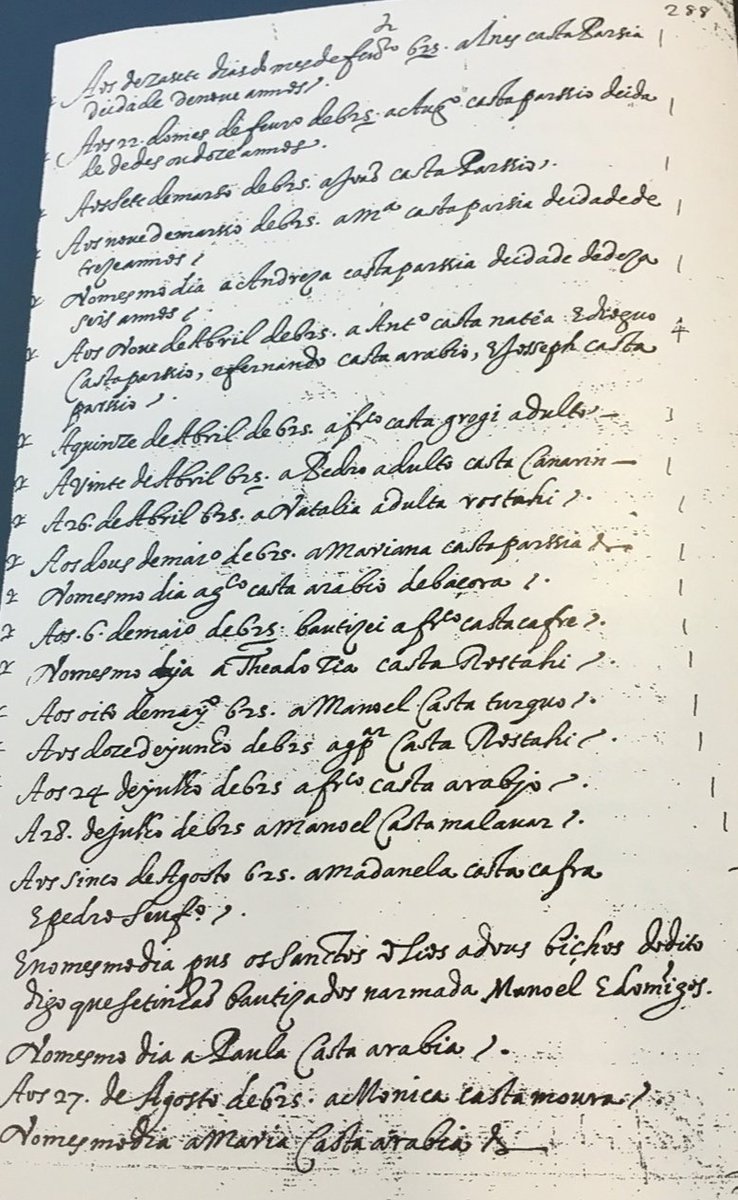 288
Aos dezasete dias do mes de feurº 625. a Ines casta Parsia
de idade de noue annos.
Aos 22. do mes de feurº de 625. a Augº casta parssio de ida
de de des ou doze annos.
Aos sete de marso de 625. a Joaõ casta Parssio.
Aos noue de marsso de 625. a Mª casta parsia de idade de
treze annos
No mesmo dia a Andreza casta parssia de idade de deza
seis annos
Aos Noue de Abril de 625. a Antº casta natêa E dieguo 4
Casta parssio, e fernando casta arabio, E Josseph casta
parssio.
A quinze de Abril de 625. a frco casta gregi adulto
A vinte de Abril 625. a Pedro adulto casta Canarin
A 26. de Abril 625. a Natalia adulta rostahi
Aos dous de maio de 625. a Mariana casta parssia &
No mesmo dia a gco casta arabio de baçora
Aos. 6. de maio de 625. bautizei a frco casta cafre.
No mesmo dja a Theadozia casta Rostahi
Aos oito de mayº 625. a Manoel Casta turguo.
Aos doze de yunho de 625 a gpar Casta Rostahi
Aos 24 de julho de 625 a frco casta arabjo
A 28. de julho de 625 a Manoel Casta malauar
Aos sinco de Agosto 625. a Madanela casta cafra
E pedro seu fº
E no mesmo dia pus os Sanctos olios a dous bichos do dito
digo que se tinhaõ bautizados narmada Manoel E domigos.
No mesmo dia a Paula Casta arabia
Aos 27. de Agosto de 625. a Monica casta moura
No mesmo dia a Maria Casta arabia &